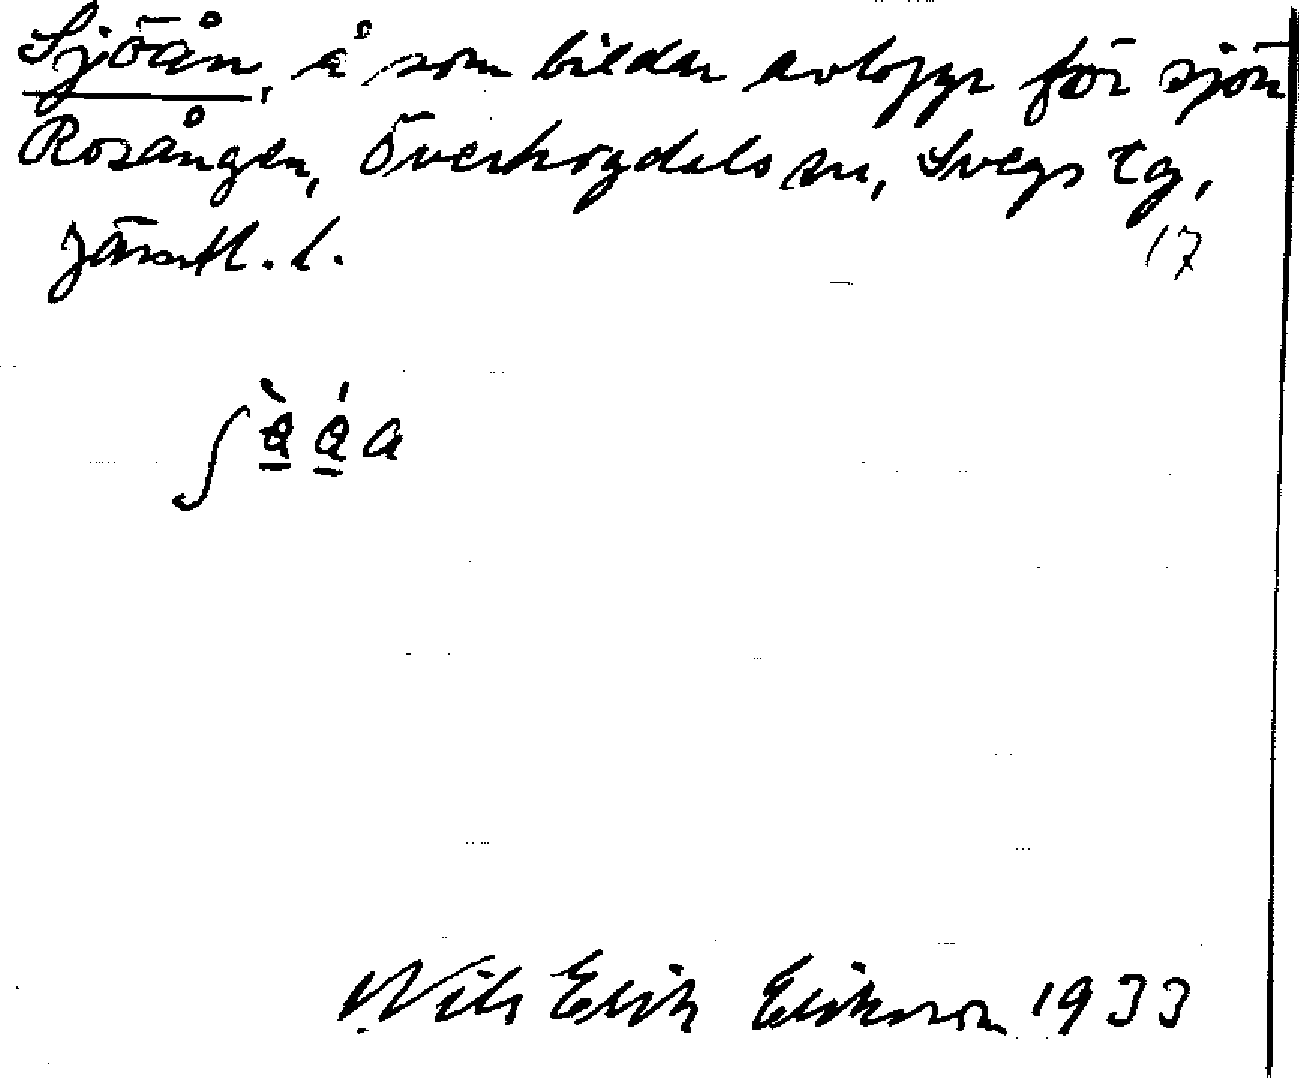 Sjöån, å som bildar avlopp för sjön
Rosången, Överhogdals sn, Svegs tg,
Jämtl. l.
17
Nils Erik Eriksson 1933